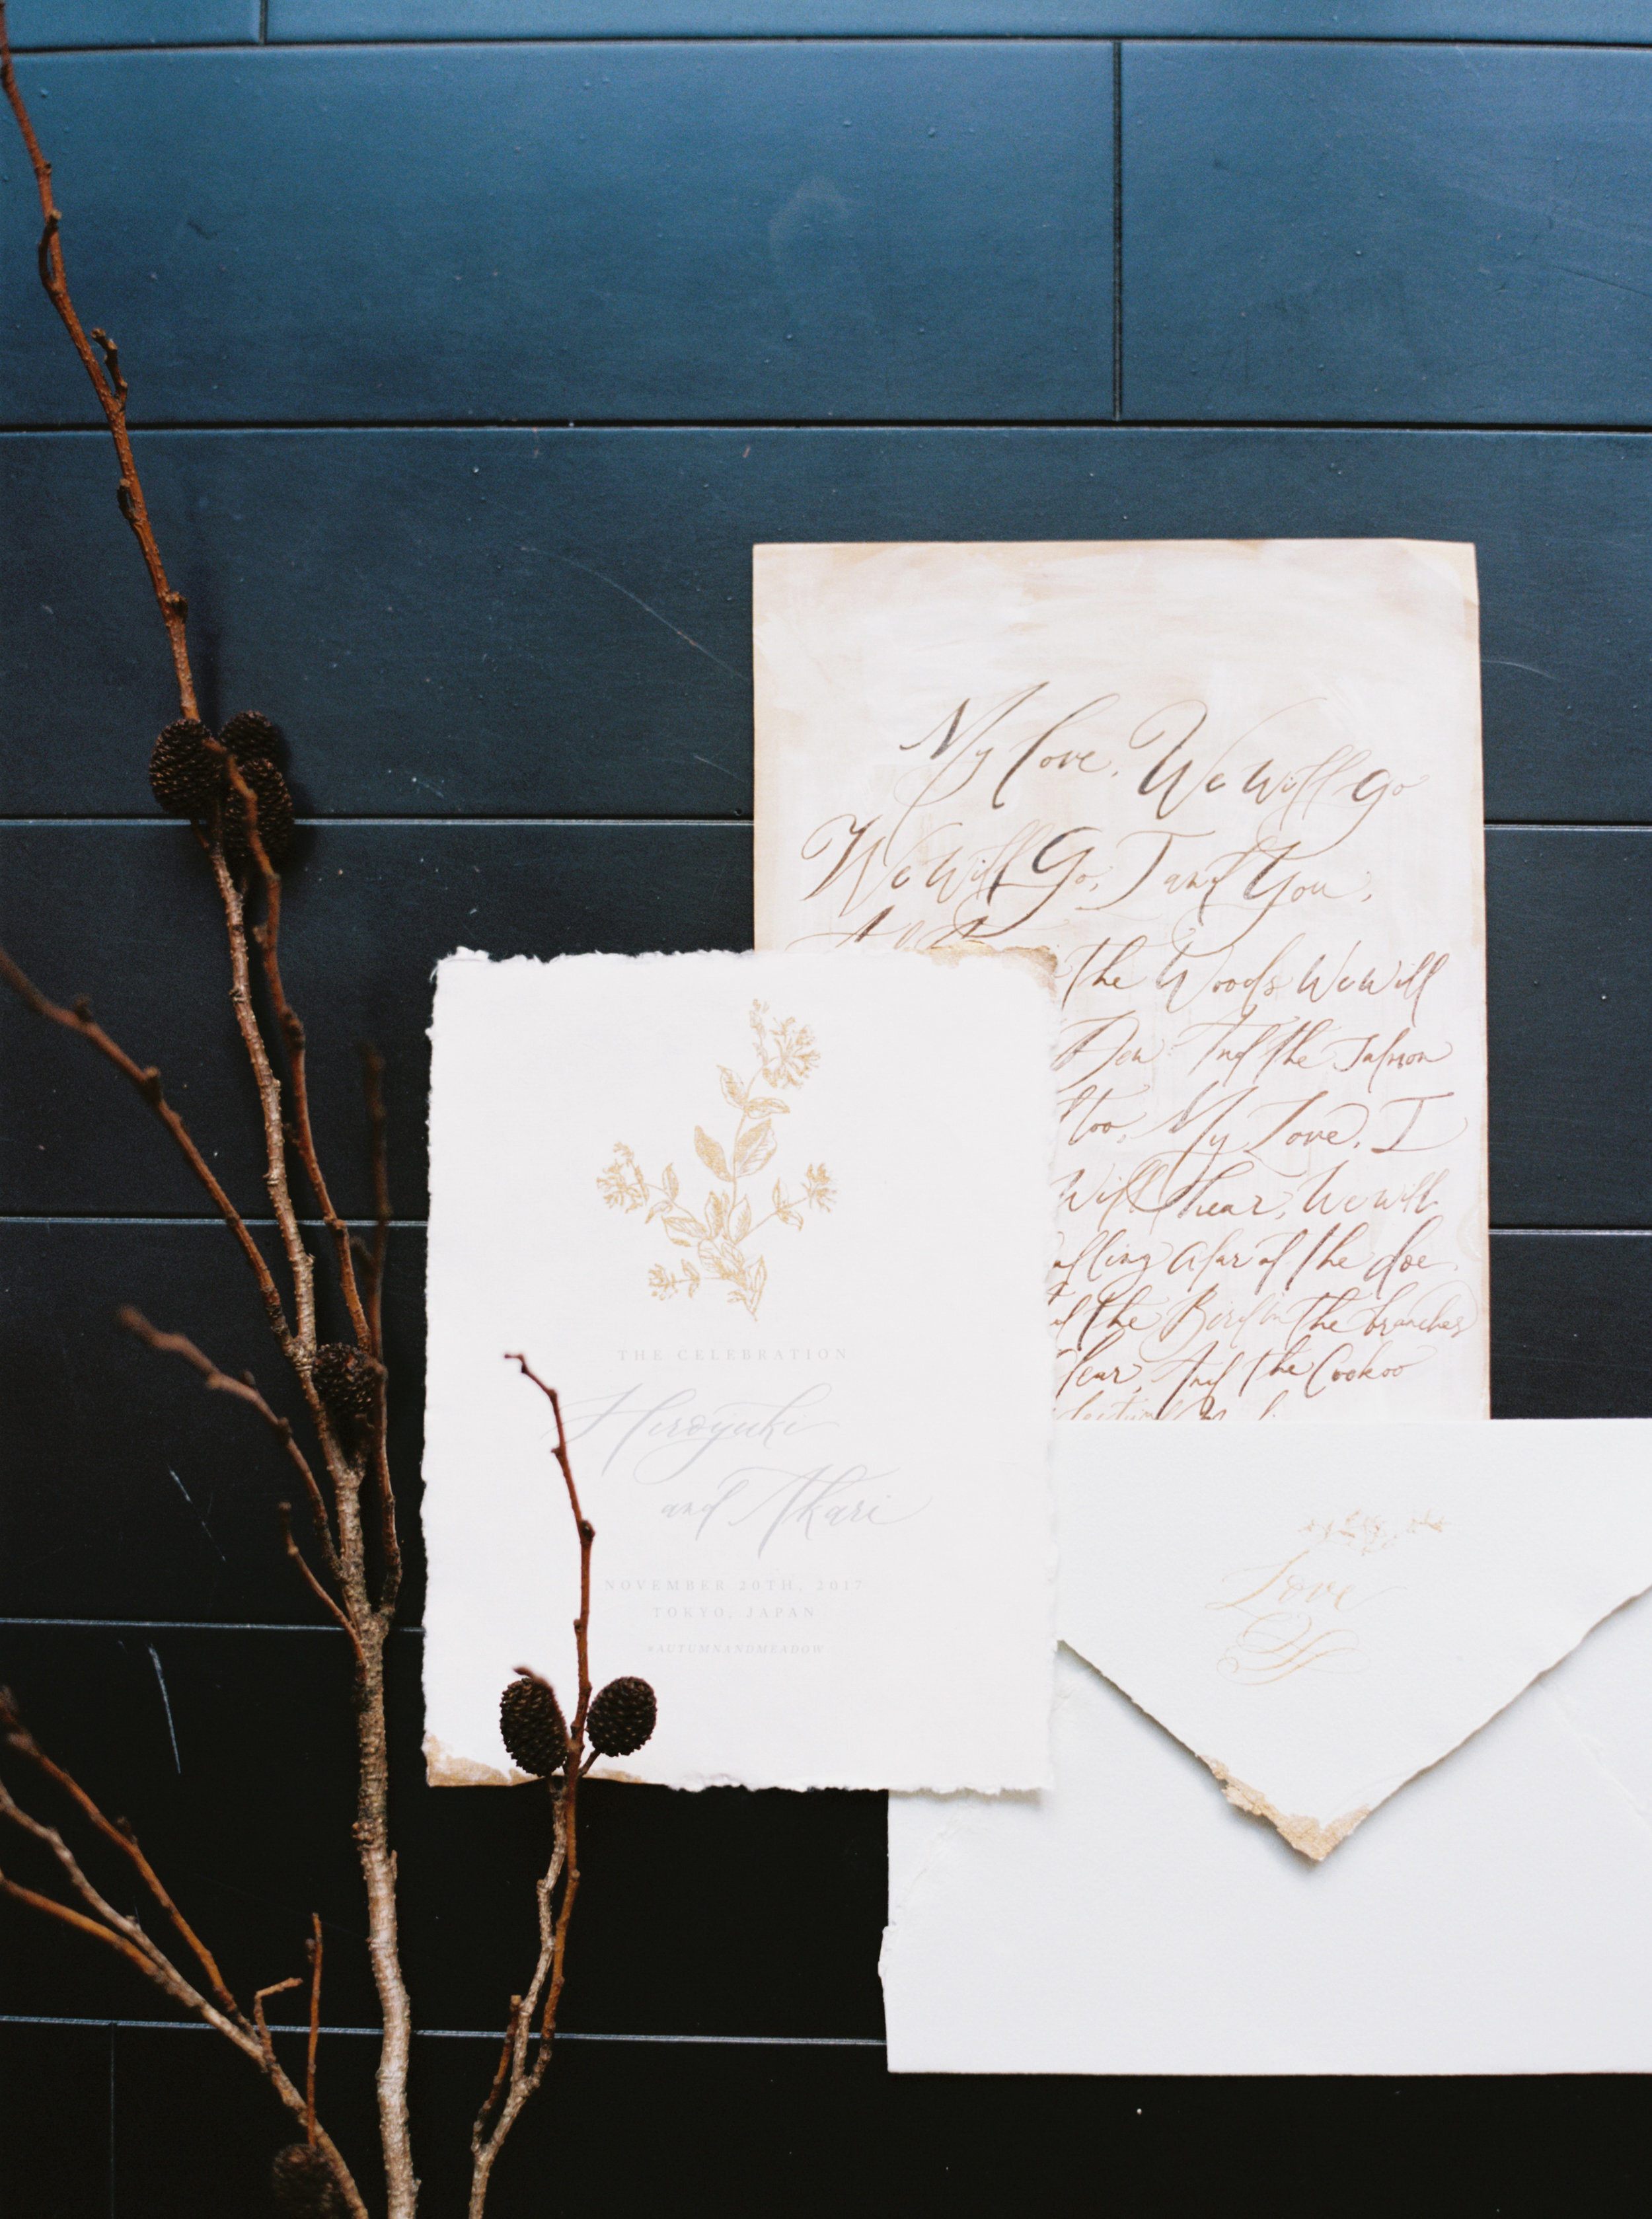 My love, We will go
We will Go, I and You,
the Woods We will
Dew And the Salmon
too, My Love, I
Will Hear, We will
Calling afar of the doe
the Bird in the branches
Clear, And the Cookoo
THE CELEBRATION
Hiroyuki
and Akari
NOVEMBER 20TH, 2017
TOKYO, JAPAN
#AUTUMNANDMEADOW
Love